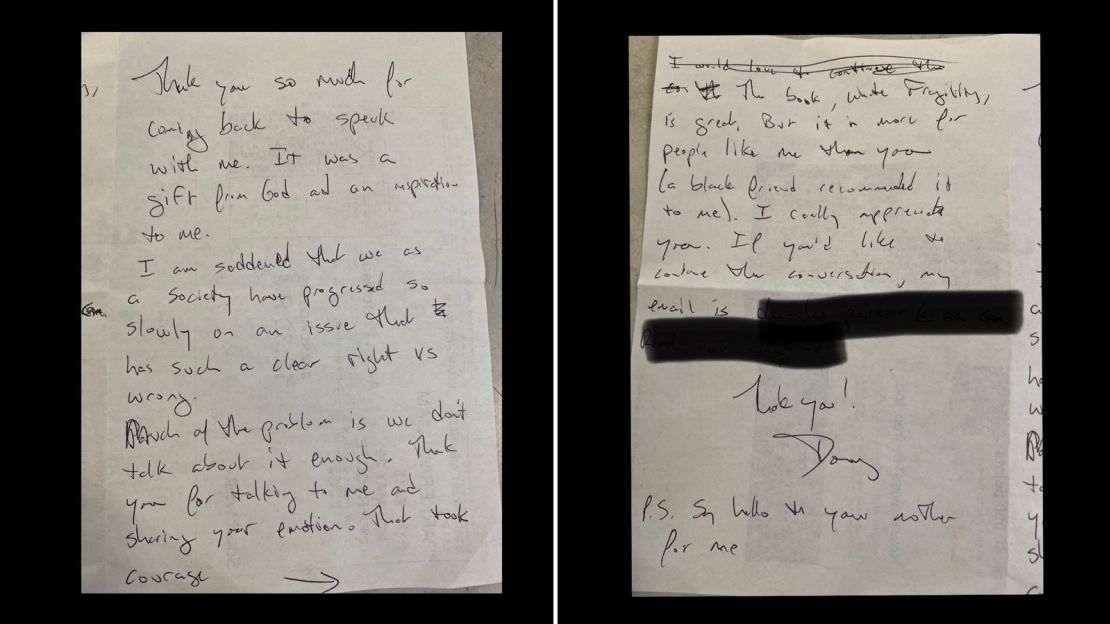 Thank you so much for
coming back to speak
with me. It was a
gift from God and an inspiration
to me.
I am saddened that we as
a society have progressed so
slowly on an issue that
has such a clear right vs
wrong.
Much of the problem is we don't
talk about it enough. Thank
you for talking to me and
sharing your emotion. That took
courage
I would love to continue the
The book, White Fragility,
is great. But it is more for
people like me than you
(a black friend recommended it
to me). I really appreciate
you. If you'd like to
continue the conversation, my
email is
Thank you!
P.S. Say hello to your mother
for me